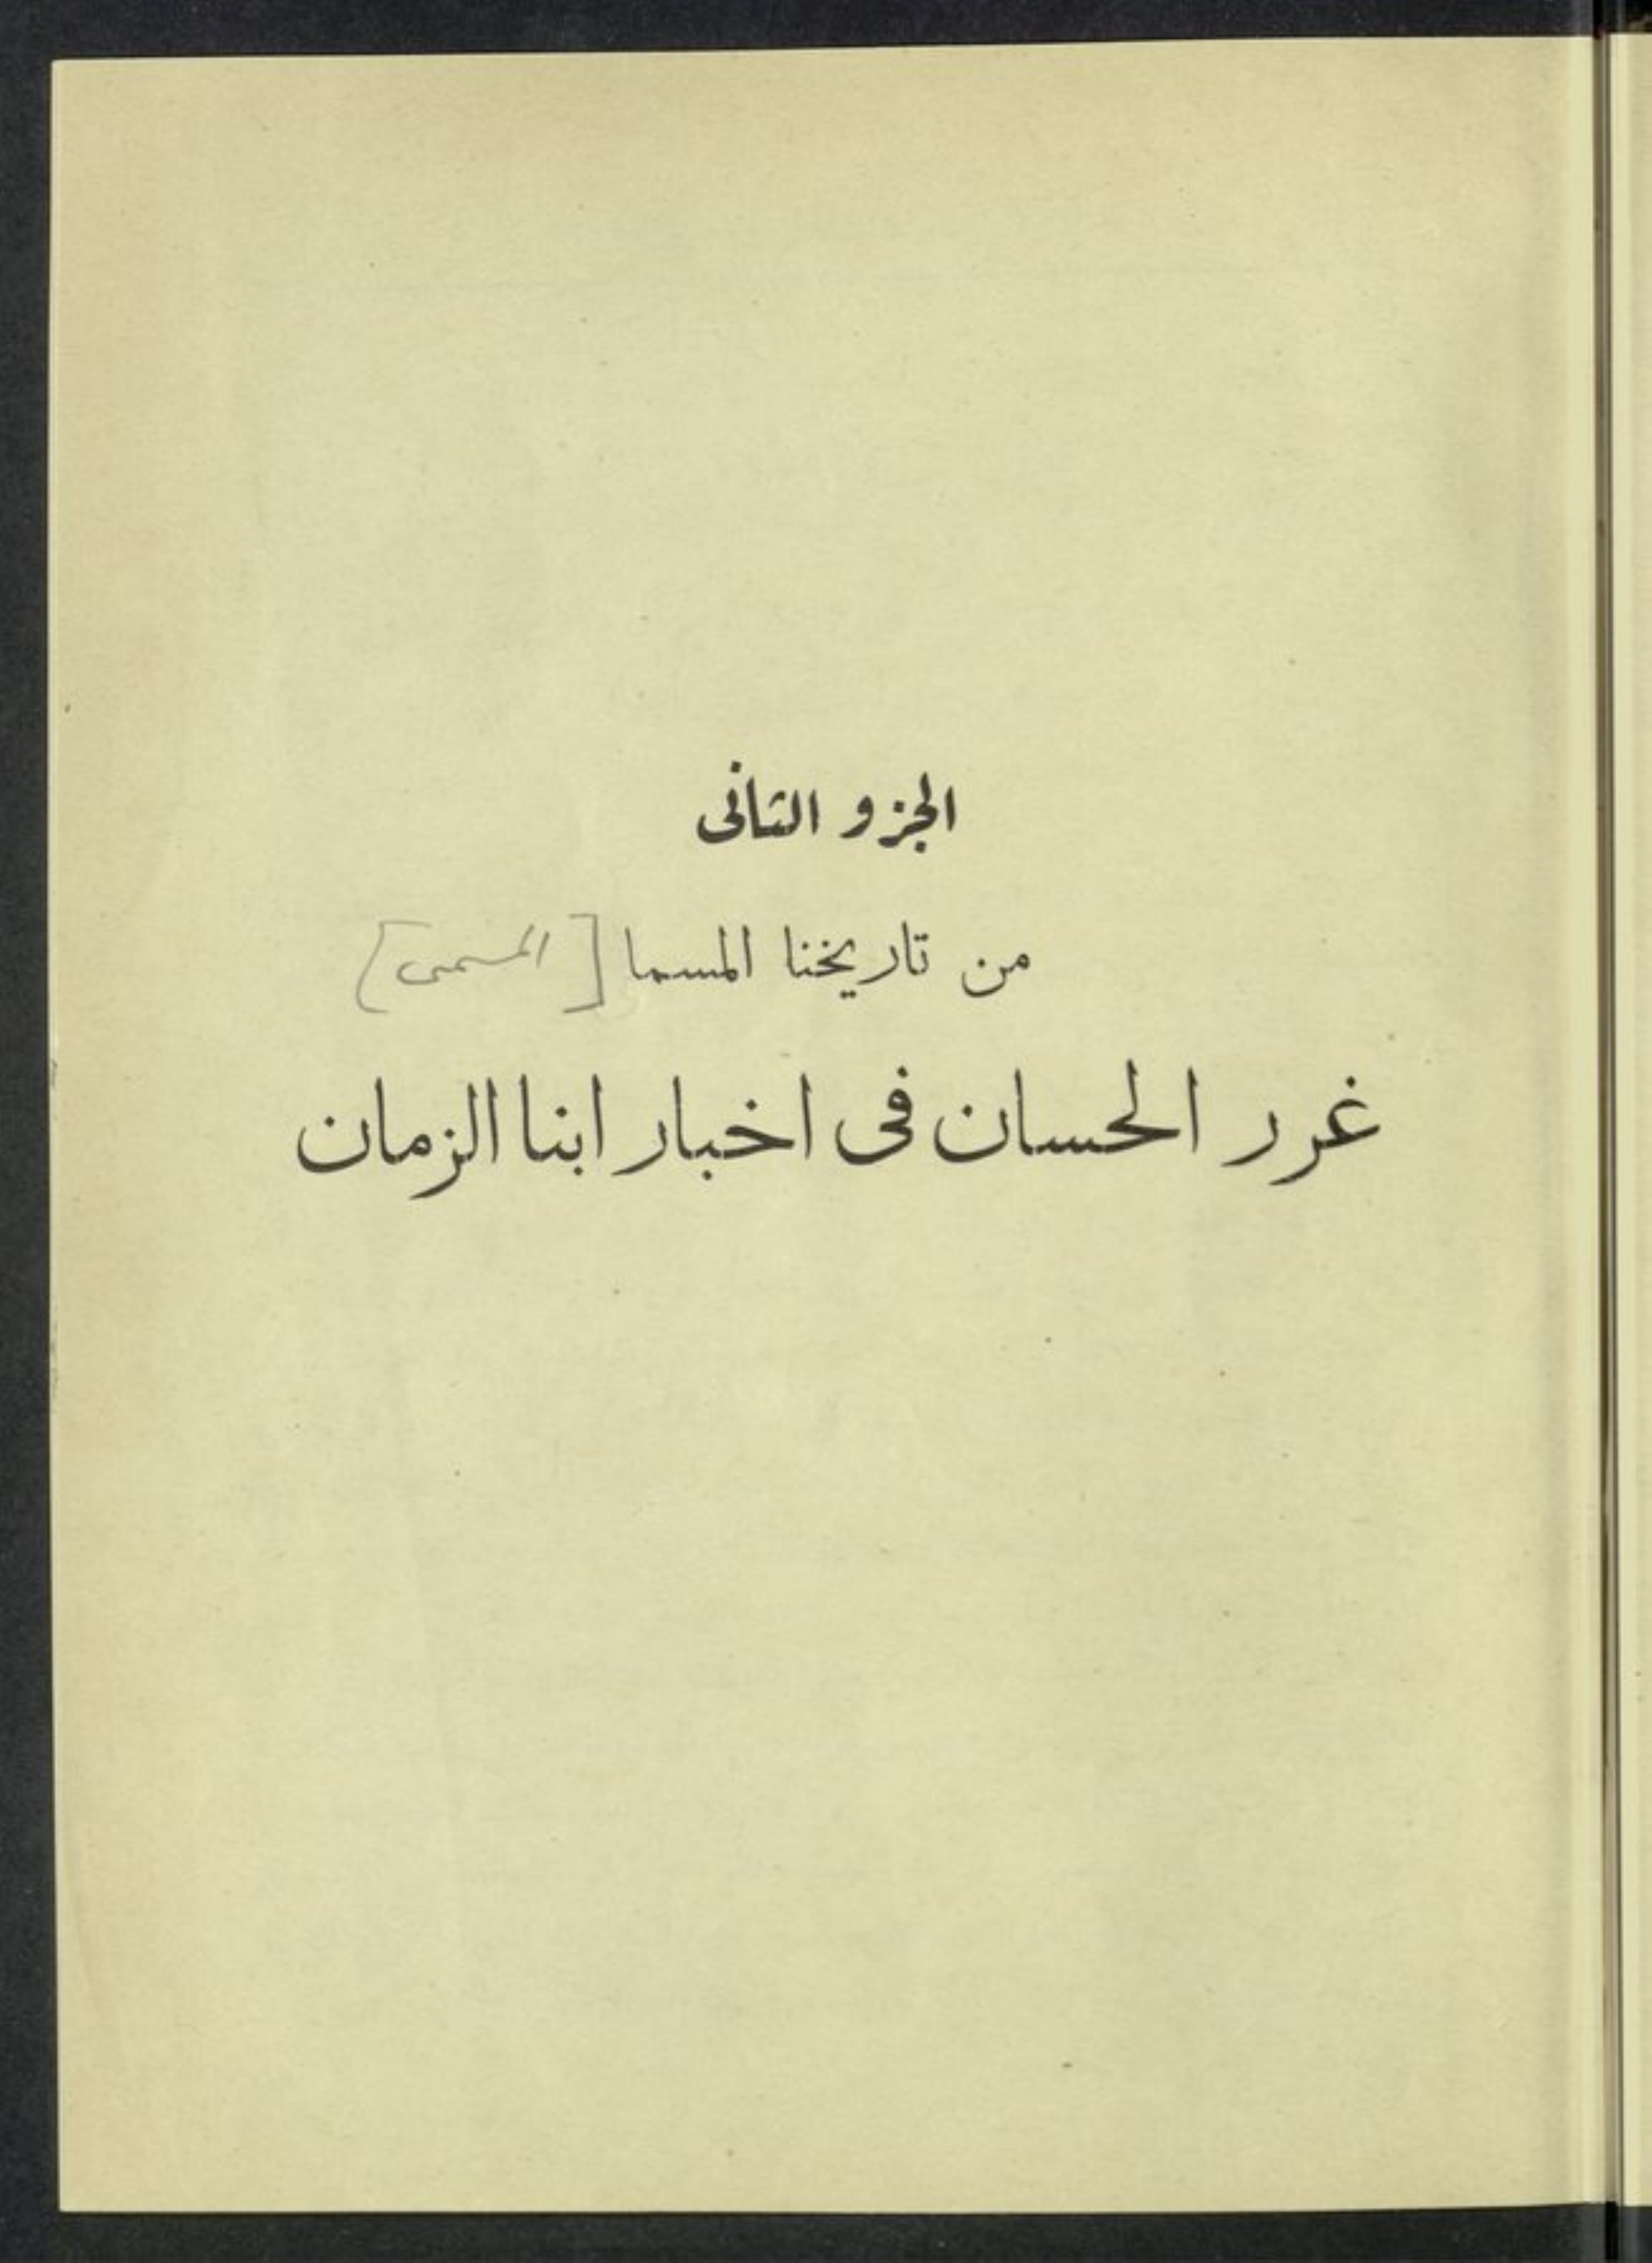 الجزو الثانى
من تاريخنا المسما [المسمى]
غرر الحسان فى اخبار ابنا الزمان